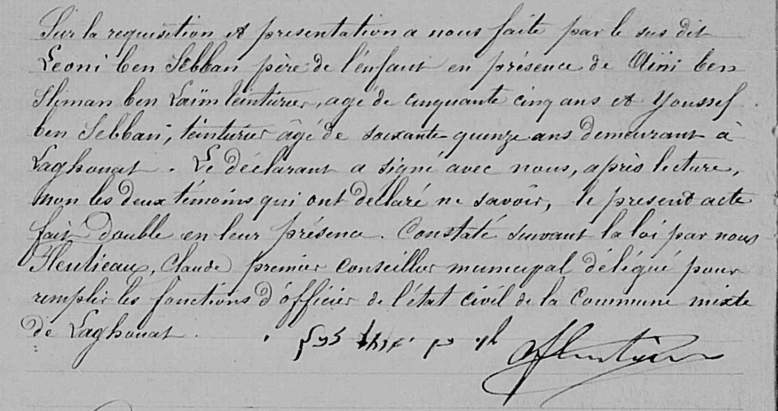 Sur la requisition et presentation a nous faite par le sus dit
Leoni ben Sebban père de l'enfant en présence de Aïni ben
Sliman ben Laïm teinturier, agé de cinquante cinq ans et Youssef
ben Sebban, teinturier âgé de soixante quinze ans demeurant à
Laghouat. Le déclarant a signé avec nous, après lecture,
non les deux témoins qui ont declaré ne savoir, le present acte
fait double en leur présence. Constaté suivant la loi par nous
Fleutieaux, Claude premier conseiller municipal délégué pour
remplir les fonctions d'officier de l'état civil de la Commune mixte
de Laghouat.